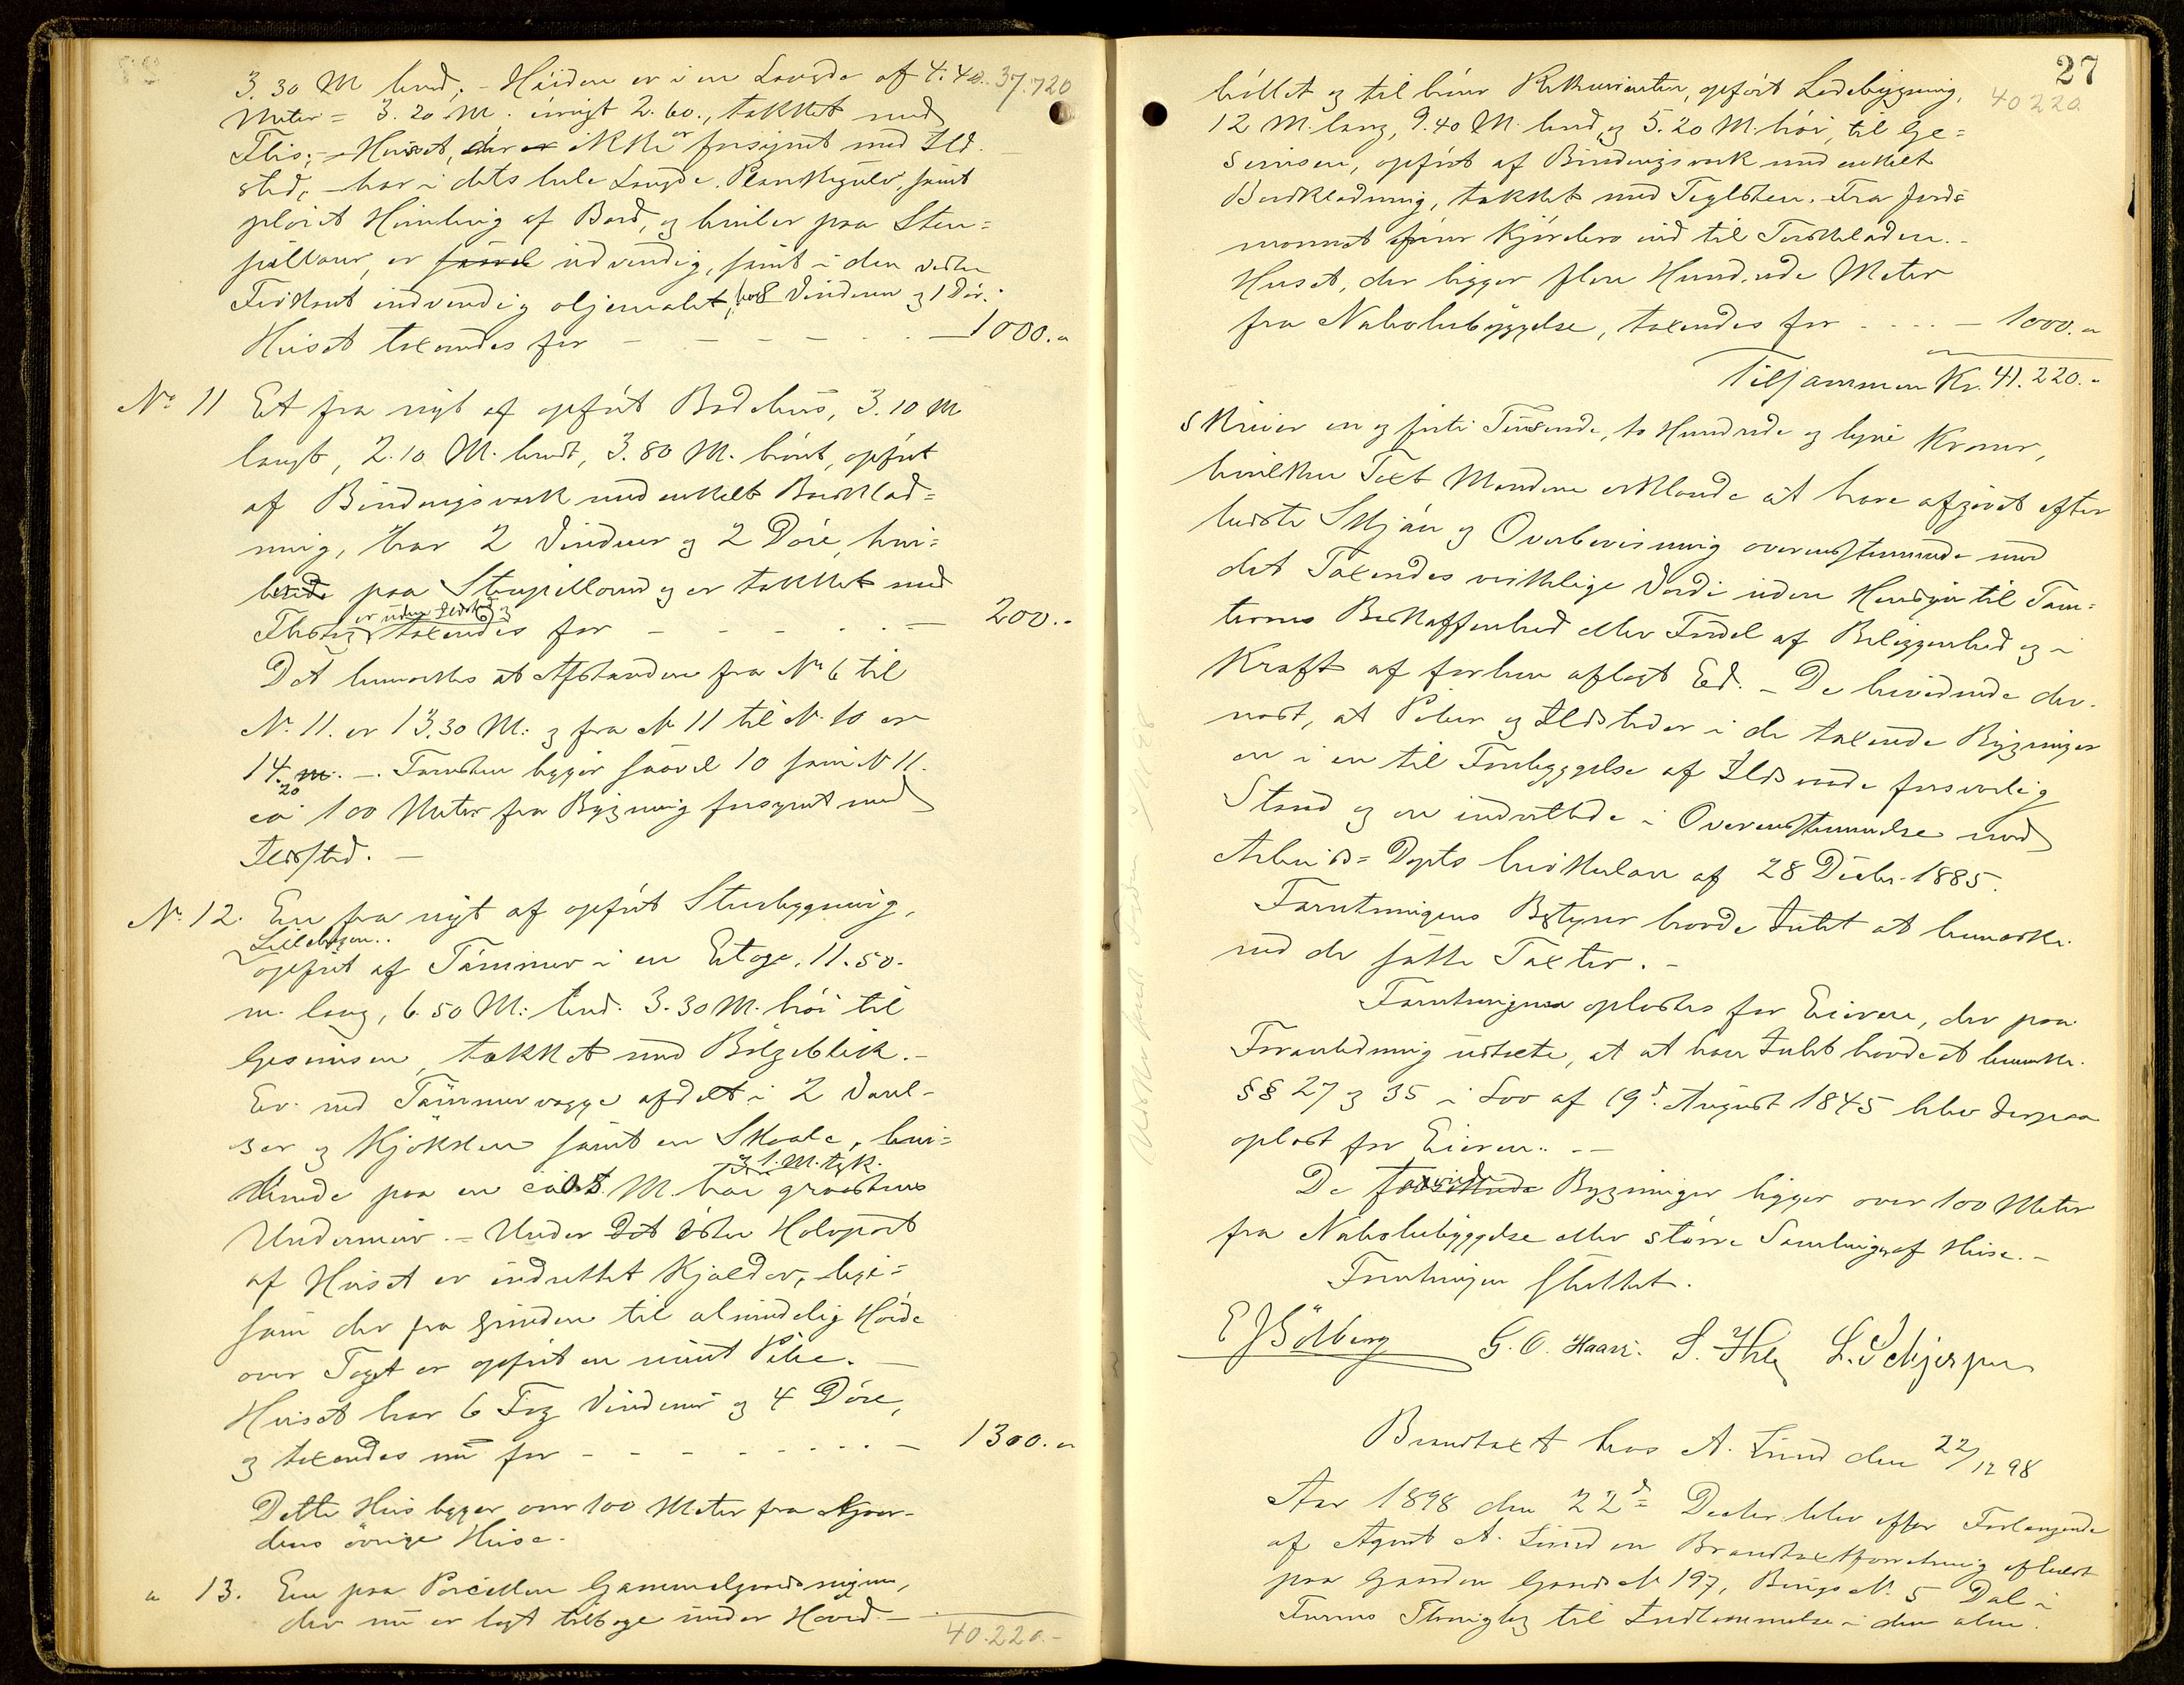 3.30 M bred, - Höiden er i en Længde af 4.40. 37.720
Meter = 3.20 M. övrigt 2.60., tækket med
Flis; - Huset, der er ikke er forsynet med Ild-
sted, - har i dets hele Længde Plankegulv, samt
plöiet Himling af Bord, og hviler paa Sten=
pillarer, er saavel udvendig, samt i den vestre
indvendig oljemalet, har 8 Vinduer og 1 Dör.
Huset taxeredes for - - - - - 1000.-
No 11 Et fra nyt af opfört Badehus, 3.10 M
langt, 2.10 M. bredt, 3.80 M. höit, opfört
af Bindingsværk med enkelt Bordklæd=
ning, har 2 Vinduer og 2 Döre, hvi=
lende paa Stenpillarer og er tækket med
er uden Ildsted og
Flis taxeredes for - - - - 200.-
Det bemærkes at Afstanden fra No 6 til
No. 11. er 13.30 M. og fra No 11 til No. 10 er
14. m. - Forresten ligger saavel 10 som No 11.
20
ca 100 Meter fra Bygning forsynet med
Ildsted. -
No. 12. En fra nyt af opfört Stuebygning,
Lillehagen..
opfört af Tömmer i en Etage. 11.50.
m. lang, 6.50 M. bred. 3.30 M. höi til
Gesimsen, tækket med Bölgeblik. -
Er ved Tömmervægge afdelt i 2 Værel-
ser og Kjökken samt en Skaale, hvi=
og 1. M. tyk.
lende paa en ca 0.8 M. höi graastens
Undermur. - Under Det östre Halvpart
af Huset er indrettet Kjælder, lige=
som der fra Grunden til almindelig Höide
over Taget er opfört en muret Pibe. -
Huset har 6 Fag Vinduer og 4 Döre,
og taxeredes nu for - - - - - 1300.-
Dette Hus ligger over 100 Meter fra Gaar-
dens övrige Huse.
" 13. En paa Parcellen Gammelgaards
der nu er lagt tilbage under Hoved - 40.220.-
27
böllet og til hörer Rekvirenten, opfört Ladebygning, 40220
12 M. lang, 9.40 M. bred og 5.20 M. höi, til Ge=
simsen, opfört af Bindingsværk med enkelt
Bordklædning, tækket med Teglsten. Fra Jords=
monnet förer Kjörebro ind til Tærskeladen. -
Huset, der ligger flere Hundrede Meter
fra Nabobebyggelse, taxeredes for - - - 1000.-
Tilsammen Kr. 41.220.-
skriver en og firti Tusende, to Hundrede og tyve Kroner,
hvilken Taxt Mændene erklærede at have afgivet efter
bedste Skjön og Overbevisning overensstemmende med
det Taxeredes virkelige Værdi uden Hensyn til Tom=
ternes Beskaffenhed eller Fordel af Beliggenhed og i
Kraft af forhen aflagt Ed. - De bevidnede der-
næst, at Piber og Ildsteder i de taxerede Bygninger
er i en til Forebyggelse af Ildsvaade forsvarlig
Stand og er indrettede i Overensstemmelse med
Arbeids= Depts Cirkulære af 28 Decbr. 1885.
Forretningens Bestyrer havde Intet at bemærke
ved de satte Taxter. -
Forretningen oplæstes for Eieren, der paa
Foranledning udtalte, at at han Intet havde at bemærke.
§§ 27 og 35 i Lov af 19d. August 1845 blev derpaa
oplæst for Eieren. - -
De taxerede Bygninger ligger over 100 Meter
fra Nabobebyggelse eller större Samlinger af Huse. -
Forretningen sluttet.
E J Sölberg G. O. Haave. S. Ihle L. Schjerpen
Brandtaxt hos A. Lund den 22/12 98
Aar 1898 den 22d = Decbr. blev efter Forlangende
af Agent A. Lund en Brandtaxtforretning afholdt
paa Gaarden Gards No 197, Brugs No. 5 Dal i
Furnes Thinglag til Indlemmelse i den alm.